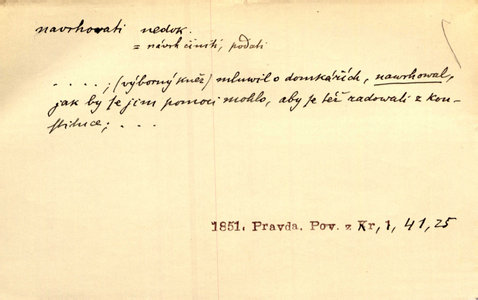 navrhovati nedok.
= návrh činiti, podati
. . . . ; (výborný kněz) mluwil o domkářích, nawrhowal,
jak by se jim pomoci mohlo, aby se též radowali z kon-
stituce; . . .
1851. Pravda. Pov. z Kr, 1, 41, 25